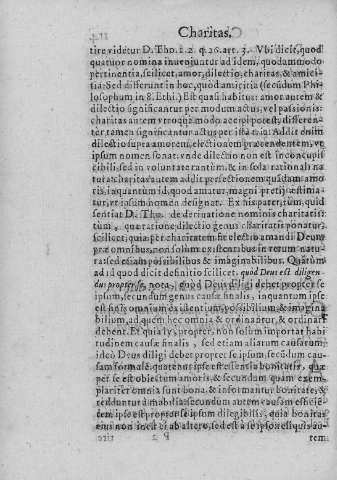 Charitas.
tire vidētur D. Tho. 1. 2. q. 26. art. 3. Vbi dicit, quod
quatuor nomina inueniuntur ad idem, quodammodo
pertinentia, scilicet, amor, dilectio, charitas, & amici-
tia. Sed differunt in hoc, quod amicitia (secundum Phi-
losophum in 8. Ethi.) Est quasi habitus: amor autem &
dilectio significantur per modum actus, vel passionis:
charitas autem vtroque modo accipi potest, differen-
ter tamen significantur actus per ista tria. Addit enim
dilectio supra amorem, electionem præcedentem, vt
ipsum nomen sonat. vnde dilectio non est in concupis
cibili, sed in voluntate tantum. & in sola rationali na
tura: charitas autem addit perfectionem quādam amo
ris, in quantum id, quod amatur, magni pretij æstima-
tur, et ipsum nomen designat. Ex his patet, cum, quid
sentiat D. Tho. de deriuatione nominis charitatis:
tum, qua ratione dilectio genus charitatis ponatur:
scilicet, quia per charitatem fit electio amandi Deum
præ omnibus, non solum existentibus in rerum natu-
ra: sed etiam possibilibus & imaginabilibus. Quātum
ad id quod dicit definitio scilicet. quod Deus est diligen
dus propter se, nota, quod Deus diligi debet propter se
ipsum, secundum genus causæ finalis, inquantum ipse
est finis omnium existentium, possibilium & imagina
bilium, ad quem hæc omnia & ordinantur, & ordinari
debent. Et quia ly, propter, non solum importat habi
tudinem causæ finalis, sed etiam aliarum causarum:
ideò Deus diligi debet propter se ipsum secūdum cau-
sam formalē. quatenus ipse est essentia bonitatis, quæ
per se est obiectum amoris, & secundum quam exem-
plariter omnia sunt bona, & informantur bonitate, &
redduntur amabilia: secundum autem causam efficiē
tem, ipse est propter se ipsum diligibilis, quia bonitas
eius non inest ei ab altero, sed est à se ipso: aliquis au-
P 2 tem